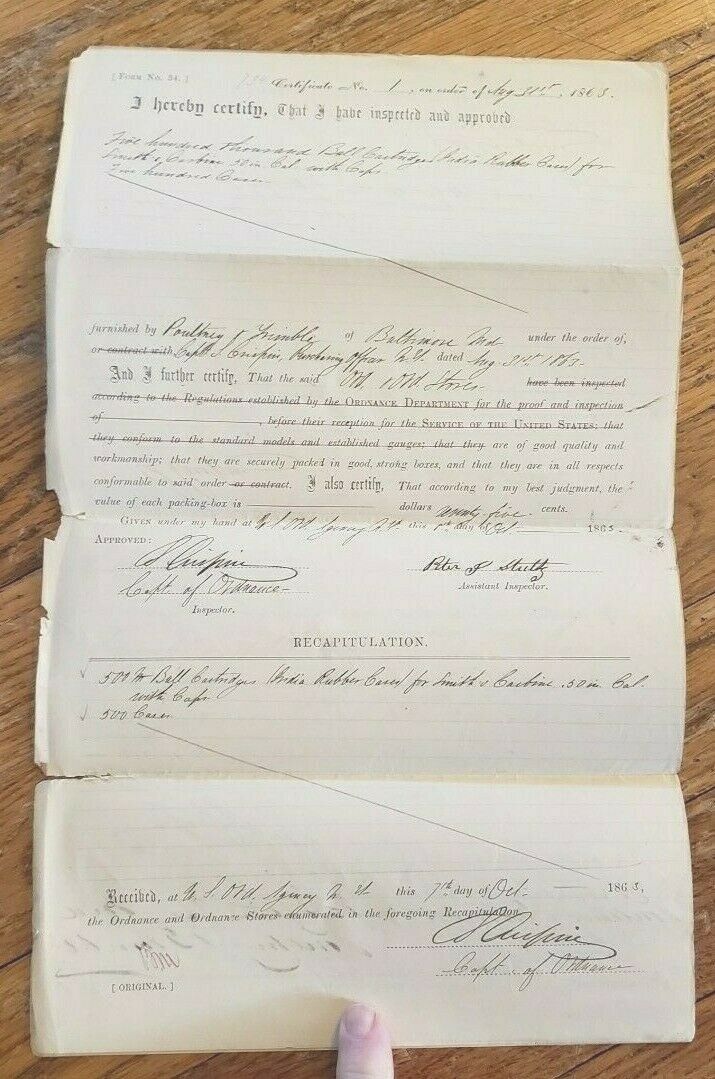 [ Form No. 34. ]
Certificate No. 1, on order of Aug 31st, 1863.
I hereby certify, That I have inspected and approved
Five hundred thousand Ball Cartridges (India Rubber Cases) for
Smith's Carbine .50 in Cal. with Caps
Five hundred Cases
furnished by Poultney & Trimble, of Baltimore Md under the order of,
or contract with, Capt. S. Crispin, Purchasing Officer N.Y. dated Aug. 31st 1863.
And I further certify, That the said Ord & Ord. Stores have been inspected
according to the Regulations established by the Ordnance Department for the proof and inspection
of , before their reception for the Service of the United States; that
they conform to the standard models and established gauges; that they are of good quality and
workmanship; that they are securely packed in good, strong boxes, and that they are in all respects
conformable to said order or contract. I also certify, That according to my best judgment, the
value of each packing-box is dollars five cents.
Given under my hand at U. S. Ord Agency N.Y. this day of Oct 1863.
Approved:
S Crispin
Capt. of Ordnance
Inspector.
Assistant Inspector.
RECAPITULATION.
500 M Ball Cartridges (India Rubber Cases) for Smith's Carbine .50 in. Cal.
with Caps
500 Cases
Received, at U. S. Ord. Agency N. Y. this 7th day of Oct. 1863,
the Ordnance and Ordnance Stores enumerated in the foregoing Recapitulation
S Crispin
Capt. of Ordnance
[ ORIGINAL. ]